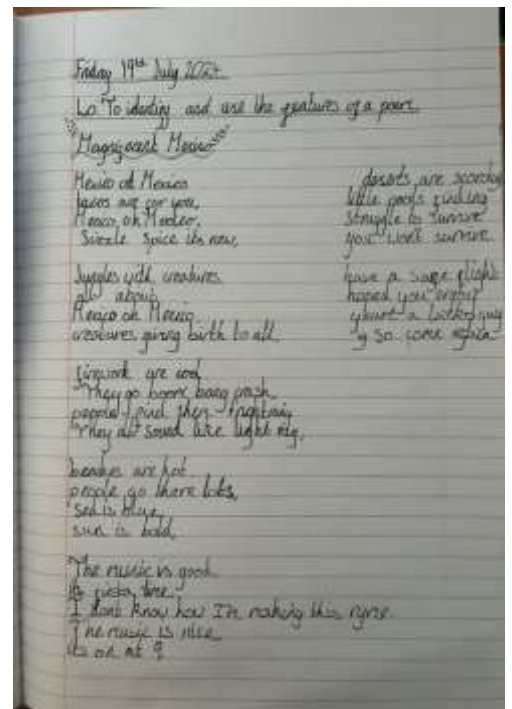 Friday 19th July 2024
Lo: To identify and use the features of a poem
Magnificent Mexico
Mexico oh Mexico
tacos are for you,
Mexico oh Mexico,
Sizzle Spice its new,
Jungles with creatures
all about
Mexico oh Mexico
creatures giving birth to all.
firework are cool
They go boom bang crash
people find them frightning
They all sound like lightning.
beaches are hot
people go there lots,
Sea is blue,
sun is bold,
The music is good
its fiesta time
I dont know how I'm making this ryme
The music is nice
its on at 9
deserts are scorching
little pools finding
struggle to survive
you won't survive
have a safe flight
hoped you enjoy
your a lucky guy
so come again